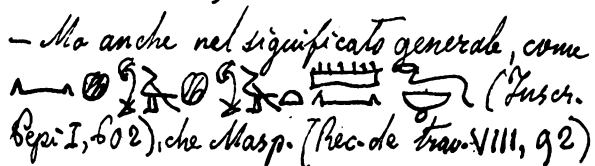 — Ma anche nel significato generale, come
𓈖 𓐍 𓐍 𓏏 𓏠 𓈖 𓎡 (Inscr.
Pepi I, 602), che Masp. (Rec. de trav. VIII, 92)